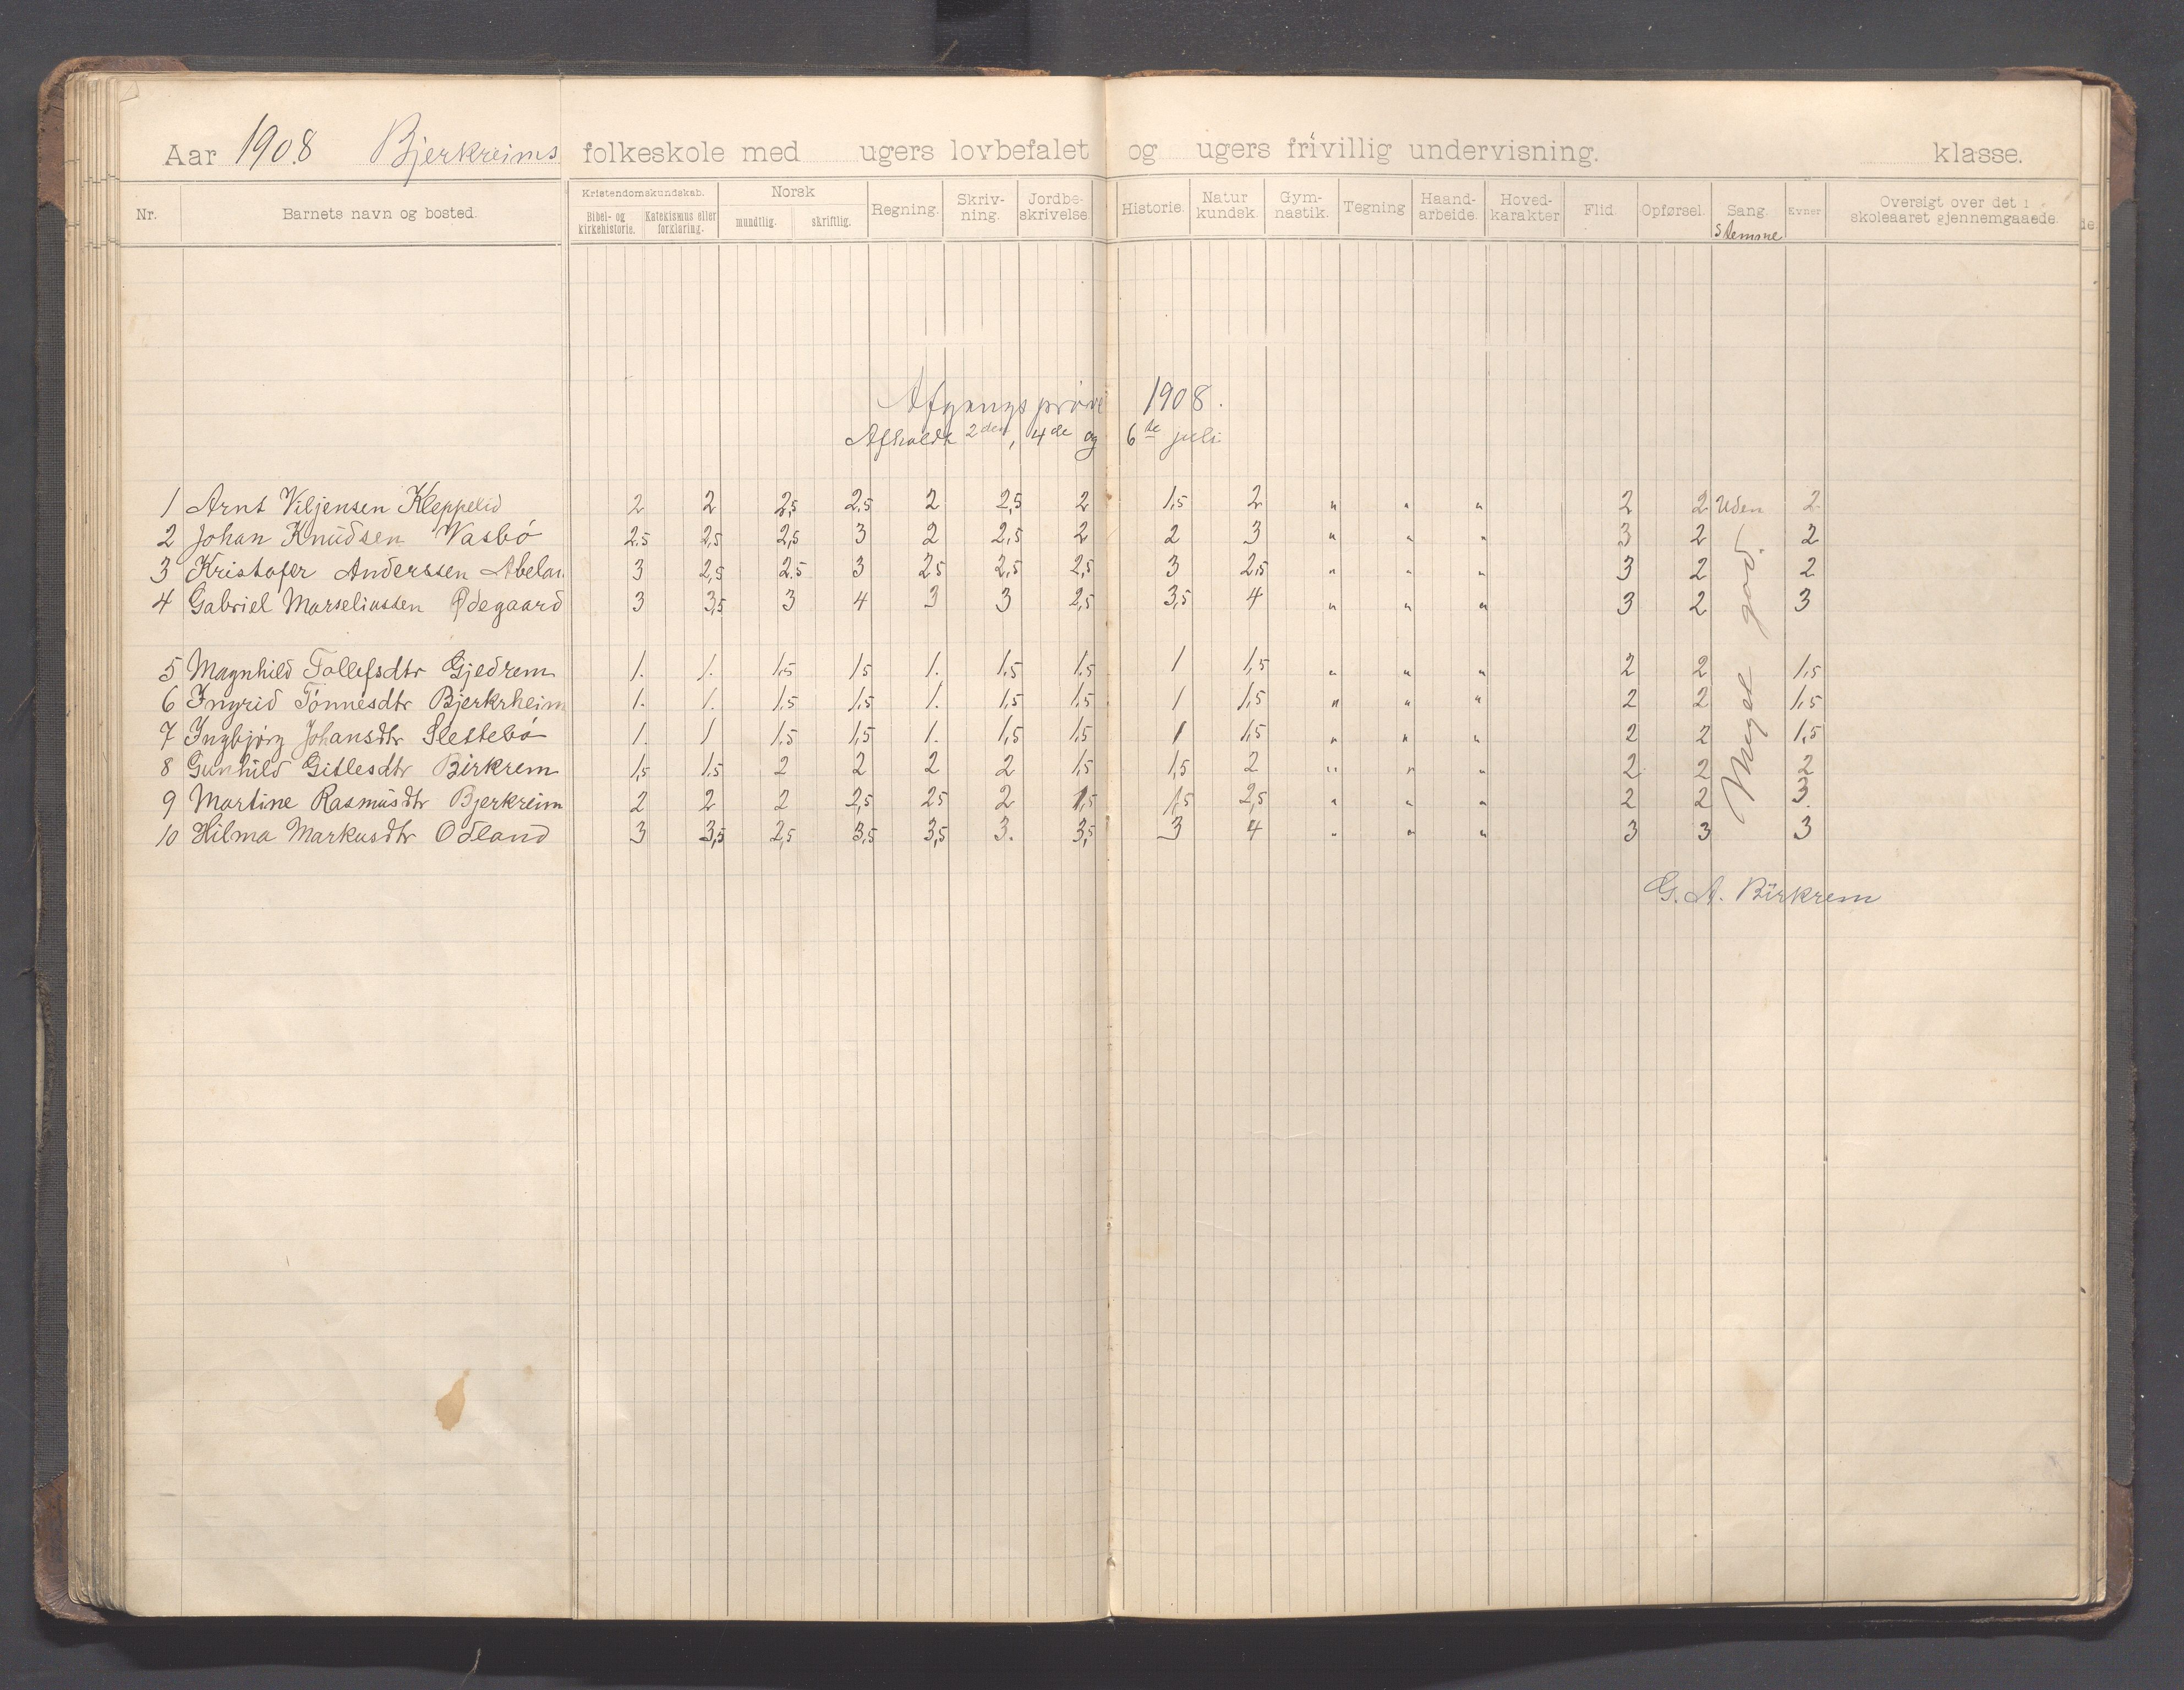 Aar 1908 Bjerkreims folkeskole med ugers lovbefalet og ugers frivillig undervisning. klasse.
Nr. Barnets navn og bosted. Kristendomskundskab. Bibel- og kirkehistorie. Katekismus eller forklaring. Norsk mundtlig. skriftlig. Regning. Skriv-ning. Jordbe-skrivelse. Historie. Natur kundsk. Gym-nastik. Tegning Haand-arbeide. Hoved-karakter Flid. Opførsel. Sang. stemme Evner Oversigt over det i skoleaaret gjennemgaaede.
Afgangsprøve 1908.
Afholdt 2den, 4de og 6te juli
1 Arnt Viljensen Kleppelid 2 2 2,5 2,5 2 2,5 2 1,5 2 " " " 2 2 Uden 2
2 Johan Knudsen Vasbø 2.5 2,5 2,5 3 2 2,5 2 2 3 " " " 3 2 2
3 Kristofer Anderssen Abelan 3 2,5 2.5 3 25 2,5 2,5 3 2,5 " " " 3 2 2
4 Gabriel Marseliussen Ødegaard 3 3,5 3 4 3 3 2,5 3,5 4 " " " 3 2 3
5 Magnhild Tollefsdtr Gjedrem 1. 1. 1.5 15 1. 1,5 1,5 1 1,5 " " " 2 2 1,5
6 Ingrid Tønnesdtr Bjerkrheim 1. 1. 1.5 1,5 1. 1,5 1,5 1 1,5 " " " 2 2 1,5
7 Ingbjørg Johansdtr Slettebø 1. 1 1.5 1,5 1. 1,5 1,5 1 1,5 " " " 2 2 1,5
8 Gunhild Gitlesdtr Birkrem 1,5 1.5 2 2 2 2 1,5 1,5 2 " " " 2 2 2
9 Martine Rasmusdtr Bjerkreim 2 2 2 2,5 25 2 1,5 1,5 2,5 " " " 2 2 3.
10 Hilma Markusdtr Odland 3 3,5 2,5 3,5 3,5 3. 3,5 3 4 " " " 3 3 3
Meget god.
G. A. Birkrem